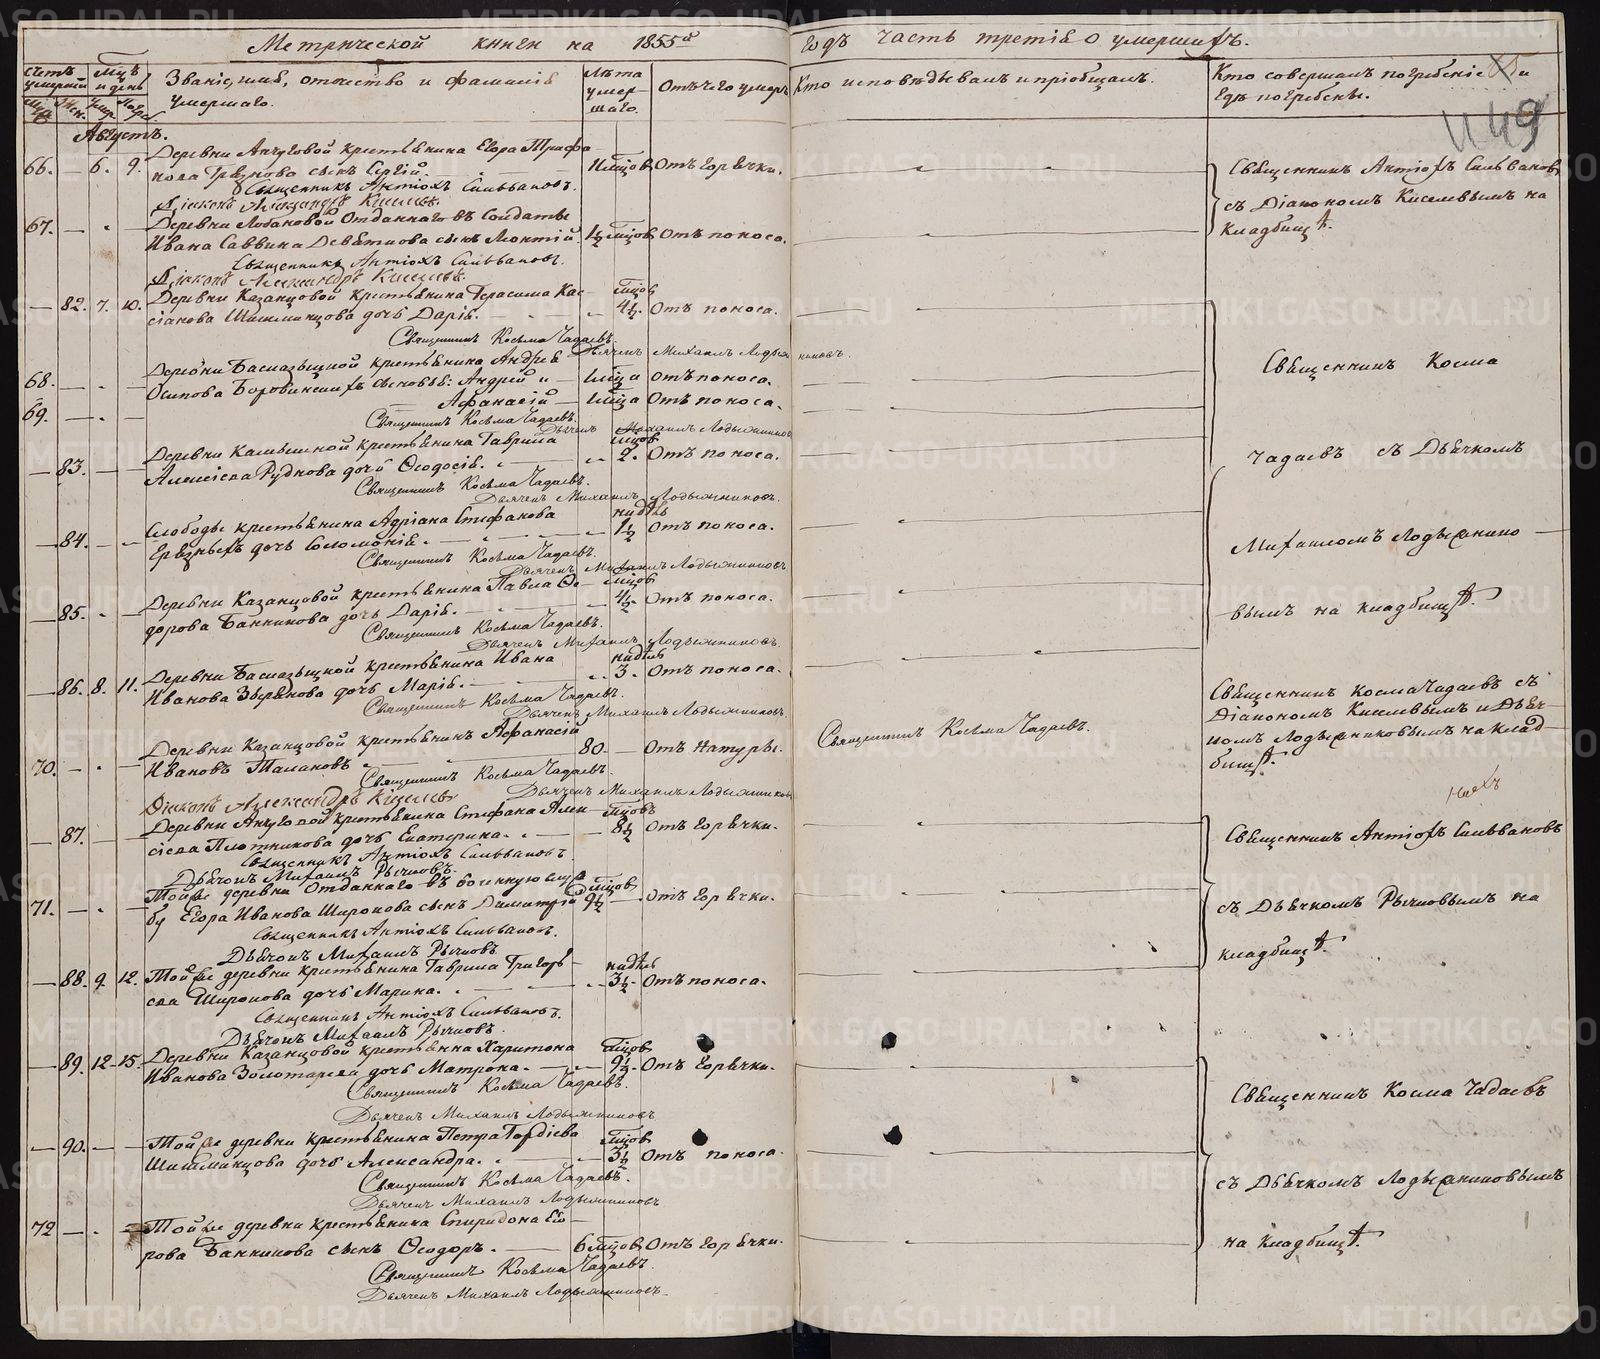 Метрической книги на 1855й годъ часть третія о умершихъ.
Счетъ умершихъ
Мцъ и день
Званіе, имя, отчество и фамилія умершаго.
Лѣта умершаго.
Отъ чего умеръ
Кто исповѣдывалъ и пріобщалъ.
Кто совершалъ погребеніе и
гдѣ погребены.
49
Августъ.
Деревни Анчуговой крестьянина Егора Трифо
66. — 6. 9. нова сынъ Сергій. мцов Отъ горячки.
Священникъ Антіохъ Сильвановъ.
Діаконъ Александръ Киселевъ
Священникъ Антіохъ Сильвановъ
съ Діакономъ Киселевымъ на
кладбищѣ.
Деревни Лобановой Отданнаго въ Солдаты
67. Ивана Саввина Девяткова сынъ Леонтій 1½ мцов Отъ поноса.
Священникъ Антіохъ Сильвановъ.
Діаконъ Александръ Киселевъ.
Деревни Казанцовой крестьянина Герасима Кас- мцов
— 82. 7. 10. сіанова Шишминцова дочь Дарія. 4½. Отъ поноса.
Священникъ Косьма Чадаевъ.
Дьячекъ Михаилъ Лодыжниковъ.
Деревни крестьянина Андрея
68. Осипова сыновья: Андрей и мца Отъ поноса.
69. Афанасій — мца Отъ поноса.
Священникъ Косьма Чадаевъ.
Дьячекъ Михаилъ Лодыжниковъ
Священникъ Косма
Чадаевъ съ Дьячкомъ
Михаиломъ Лодыжнико-
вымъ на кладбищѣ.
Деревни крестьянина Гаврила мцов
— 83. Алексіева Рудкова дочь Ѳеодосія. 2. Отъ поноса.
Священникъ Косьма Чадаевъ.
Дьячекъ Михаилъ Лодыжниковъ.
Слободы крестьянина Адріана Стефанова надѣль
84. дочь Соломонія. 1½ Отъ поноса.
Священникъ Косьма Чадаевъ.
Дьячекъ Михаилъ Лодыжниковъ
Деревни Казанцовой крестьянина Павла Ѳе- мцов
85. дорова Банникова дочь Дарія. 4½. Отъ поноса.
Священникъ Косьма Чадаевъ.
Дьячекъ Михаилъ Лодыжниковъ.
Деревни крестьянина Ивана надѣль
86. 8. 11. Иванова дочь Марія. 3. Отъ поноса.
Священникъ Косьма Чадаевъ.
Дьячекъ Михаилъ Лодыжниковъ.
Священникъ Косма Чадаевъ съ
Діакономъ Киселевымъ и Дьяч-
комъ Лодыжниковымъ на клад
бищѣ.
Деревни Казанцовой крестьянинъ Афанасій
70. Ивановъ Талановъ 80. — Отъ Натуры.
Священникъ Косьма Чадаевъ.
Священникъ Косьма Чадаевъ.
Дьячекъ Михаилъ Лодыжников
Діаконъ Александръ Киселевъ
Деревни Анчуговой крестьянина Стефана Алек- мцовъ
— 87. сіева Плотникова дочь Екатерина. 8½ Отъ горячки.
Священникъ Антіохъ Сильвановъ
Дьячокъ Михаилъ Рычковъ.
Священникъ Антіохъ Сильвановъ
съ Дьячкомъ Рычковымъ на
кладбищѣ.
Той же деревни Отданнаго въ военную служ мцов
71. бу Егора Иванова Широкова сынъ Димитрій 9½ — Отъ горячки.
Священникъ Антіохъ Сильвановъ.
Дьячокъ Михаилъ Рычковъ
Той же деревни крестьянина Гаврила Григорь- надѣль
— 88. 9. 12. ева Широкова дочь Марина. 3½ Отъ поноса.
Священникъ Антіохъ Сильвановъ.
Дьячокъ Михаилъ Рычковъ.
Деревни Казанцовой крестьянина Харитона мцов
— 89. 12. 15. Иванова Золотарева дочь Матрона. 9½. Отъ Горячки.
Священникъ Косьма Чадаевъ.
Дьячекъ Михаилъ Лодыжниковъ
Священникъ Косма Чадаевъ
съ Дьячкомъ Лодыжниковымъ
на кладбищѣ.
Той же деревни крестьянина Петра Гордіева мцов
— 90. Шишминцова дочь Александра. 3½ Отъ поноса.
Священникъ Косьма Чадаевъ.
Дьячекъ Михаилъ Лодыжниковъ
Той же деревни крестьянина Спиридона Его-
72 рова Банникова сынъ Ѳеодоръ. 6 мцов Отъ горячки.
Священникъ Косьма Чадаевъ.
Дьячекъ Михаилъ Лодыжниковъ.
METRIKI.GASO-URAL.RU